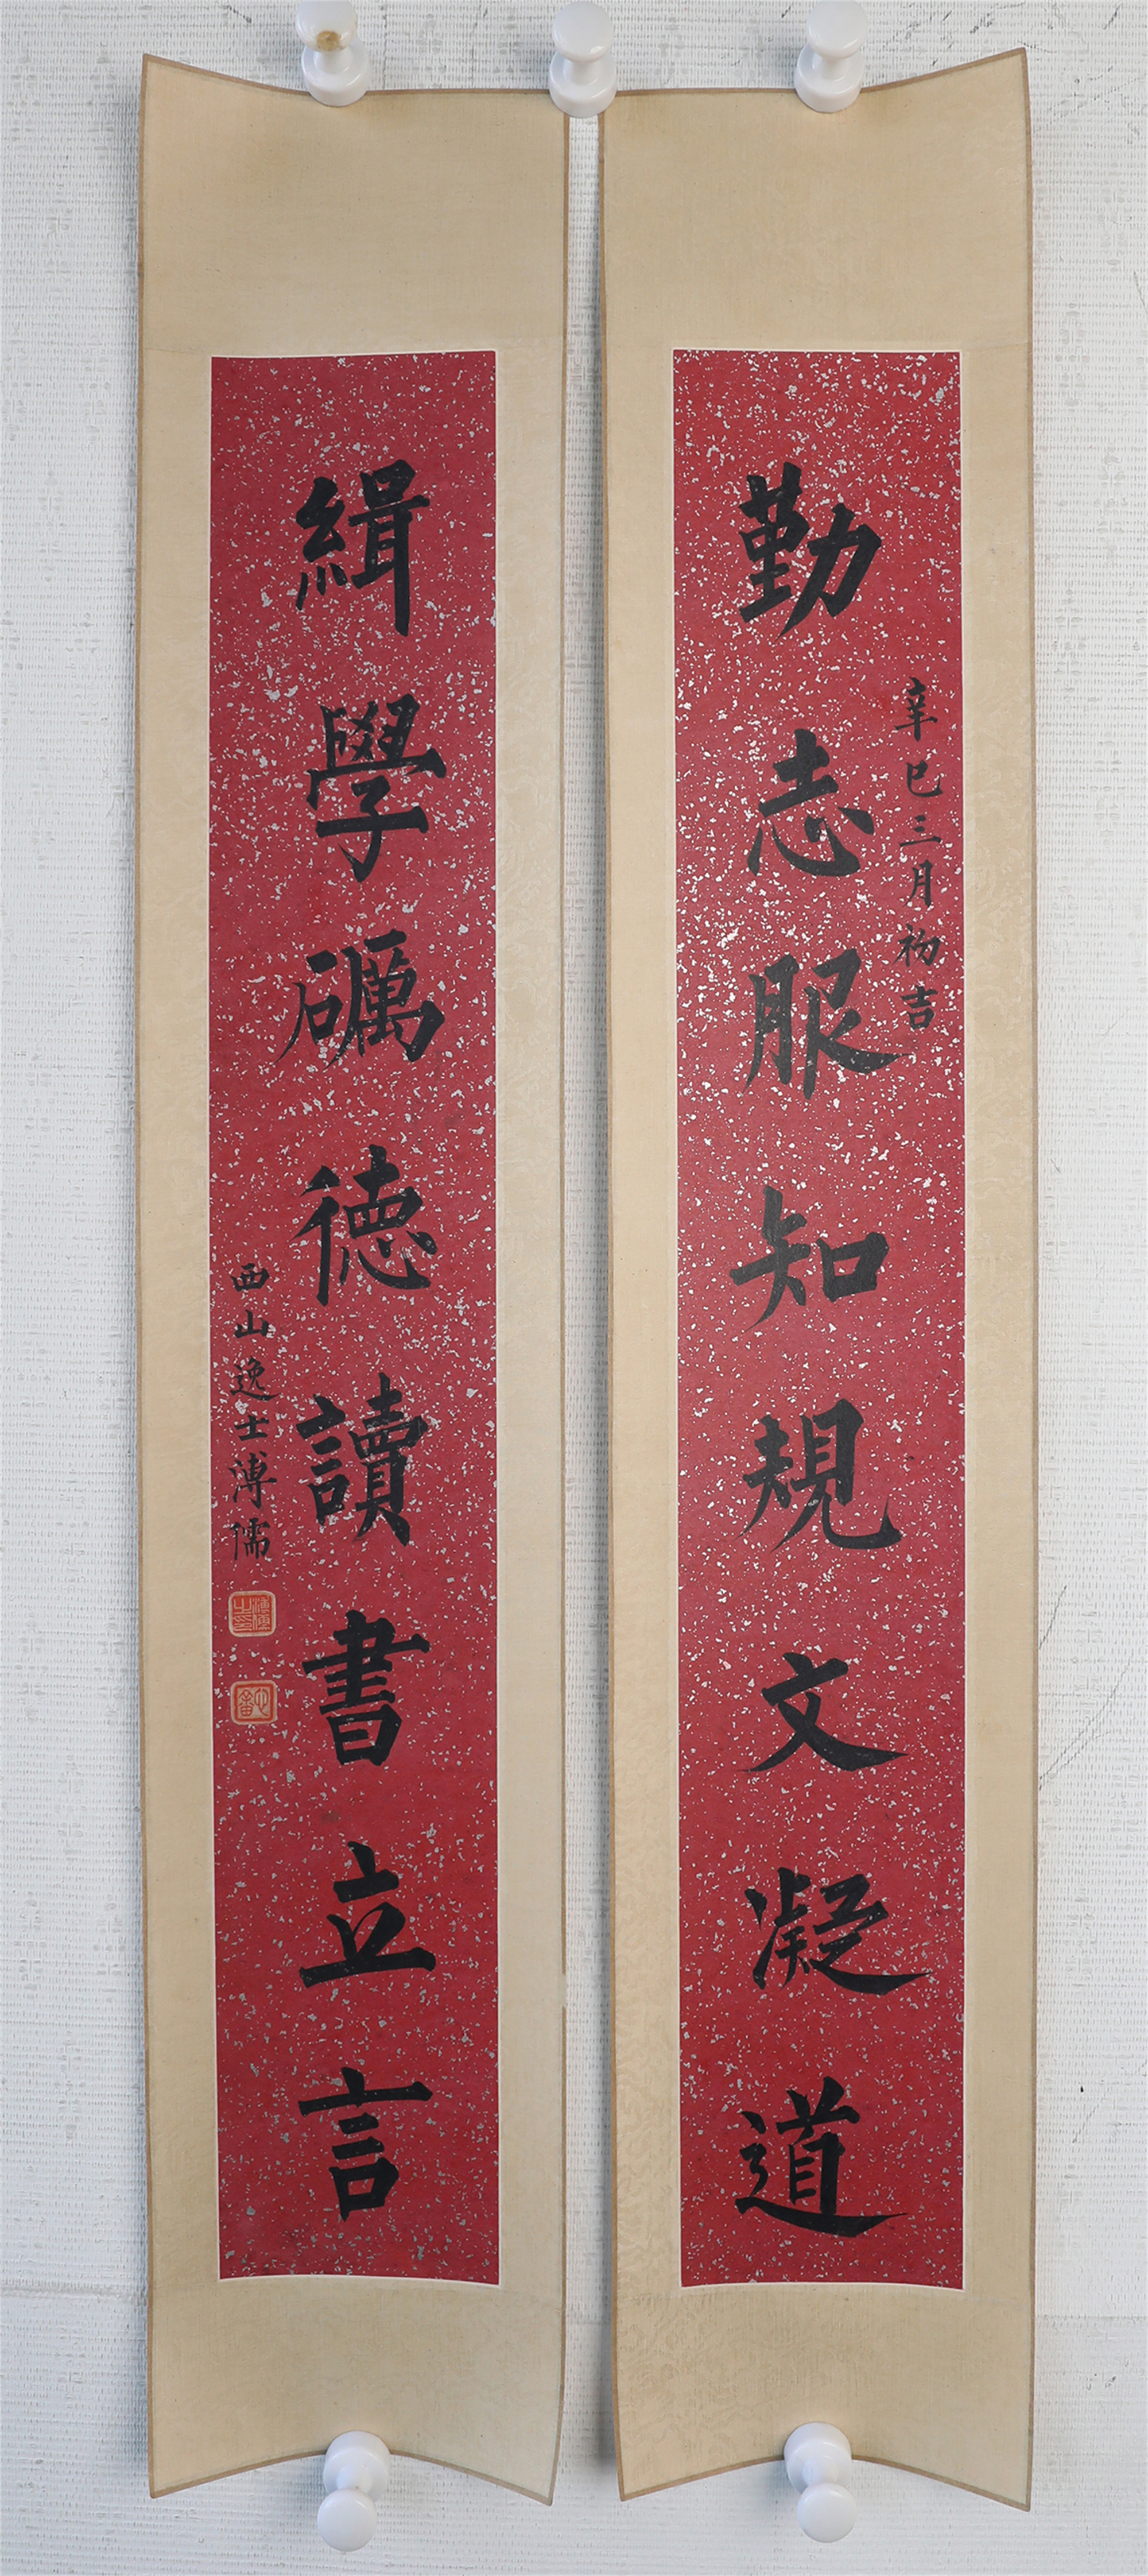 勤志服知規文凝道
辛巳三月初吉
緝學礪德讀書立言
西山逸士溥儒
溥儒之印
心畬